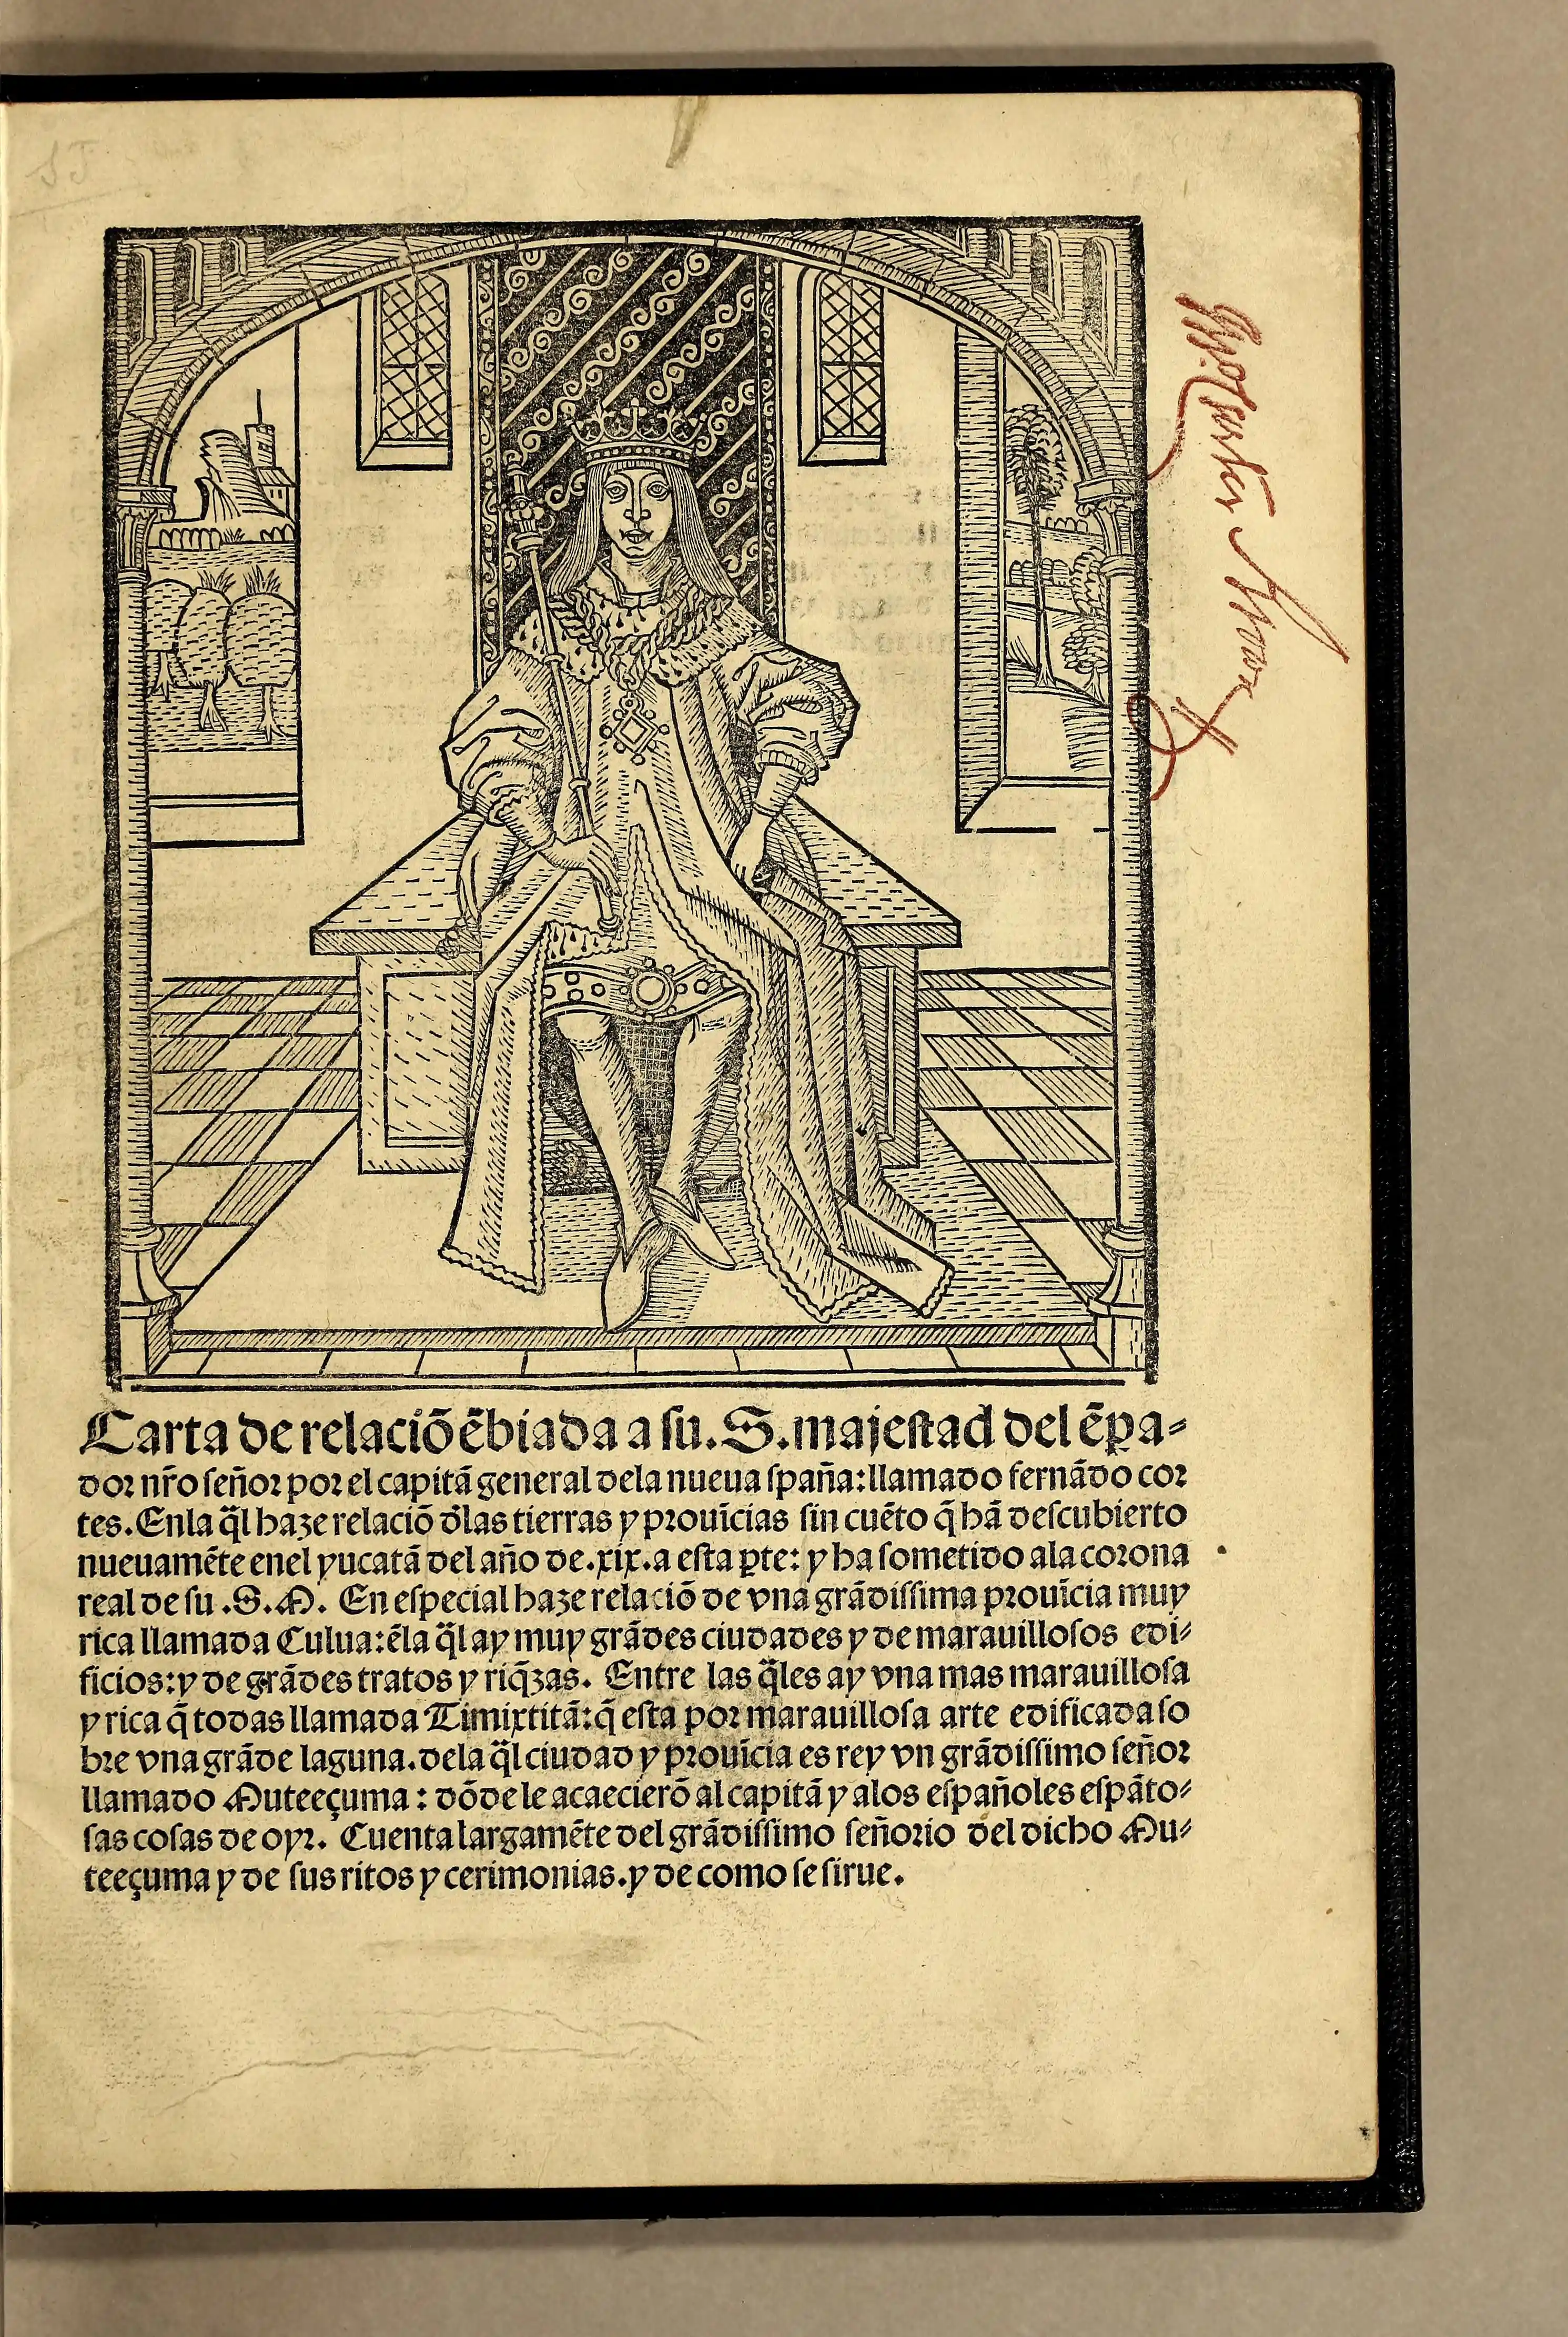 Carta de relaciõ ẽbiada a su .S. majestad del ẽpa-
dor nr̃o señor por el capitã general dela nueua spaña: llamado fernãdo cor
tes. Enla q̃l haze relaciõ d'las tierras y prouĩcias sin cuẽto q̃ hã descubierto
nueuamẽte enel yucatã del año de .xix. a esta ꝑte: y ha sometido ala corona
real de su .S.M. En especial haze relaciõ de vna grãdissima prouĩcia muy
rica llamada Culua: ẽla q̃l ay muy grãdes ciudades y de marauillosos edi-
ficios: y de grãdes tratos y riq̃zas. Entre las q̃les ay vna mas marauillosa
y rica q̃ todas llamada Timixtitã: q̃ esta por marauillosa arte edificada so
bre vna grãde laguna. dela q̃l ciudad y prouĩcia es rey vn grãdissimo señor
llamado Muteeçuma: dõde le acaecierõ al capitã y alos españoles espãto-
sas cosas de oyr. Cuenta largamẽte del grãdissimo señorio del dicho Mu-
teeçuma y de sus ritos y cerimonias. y de como se sirue.